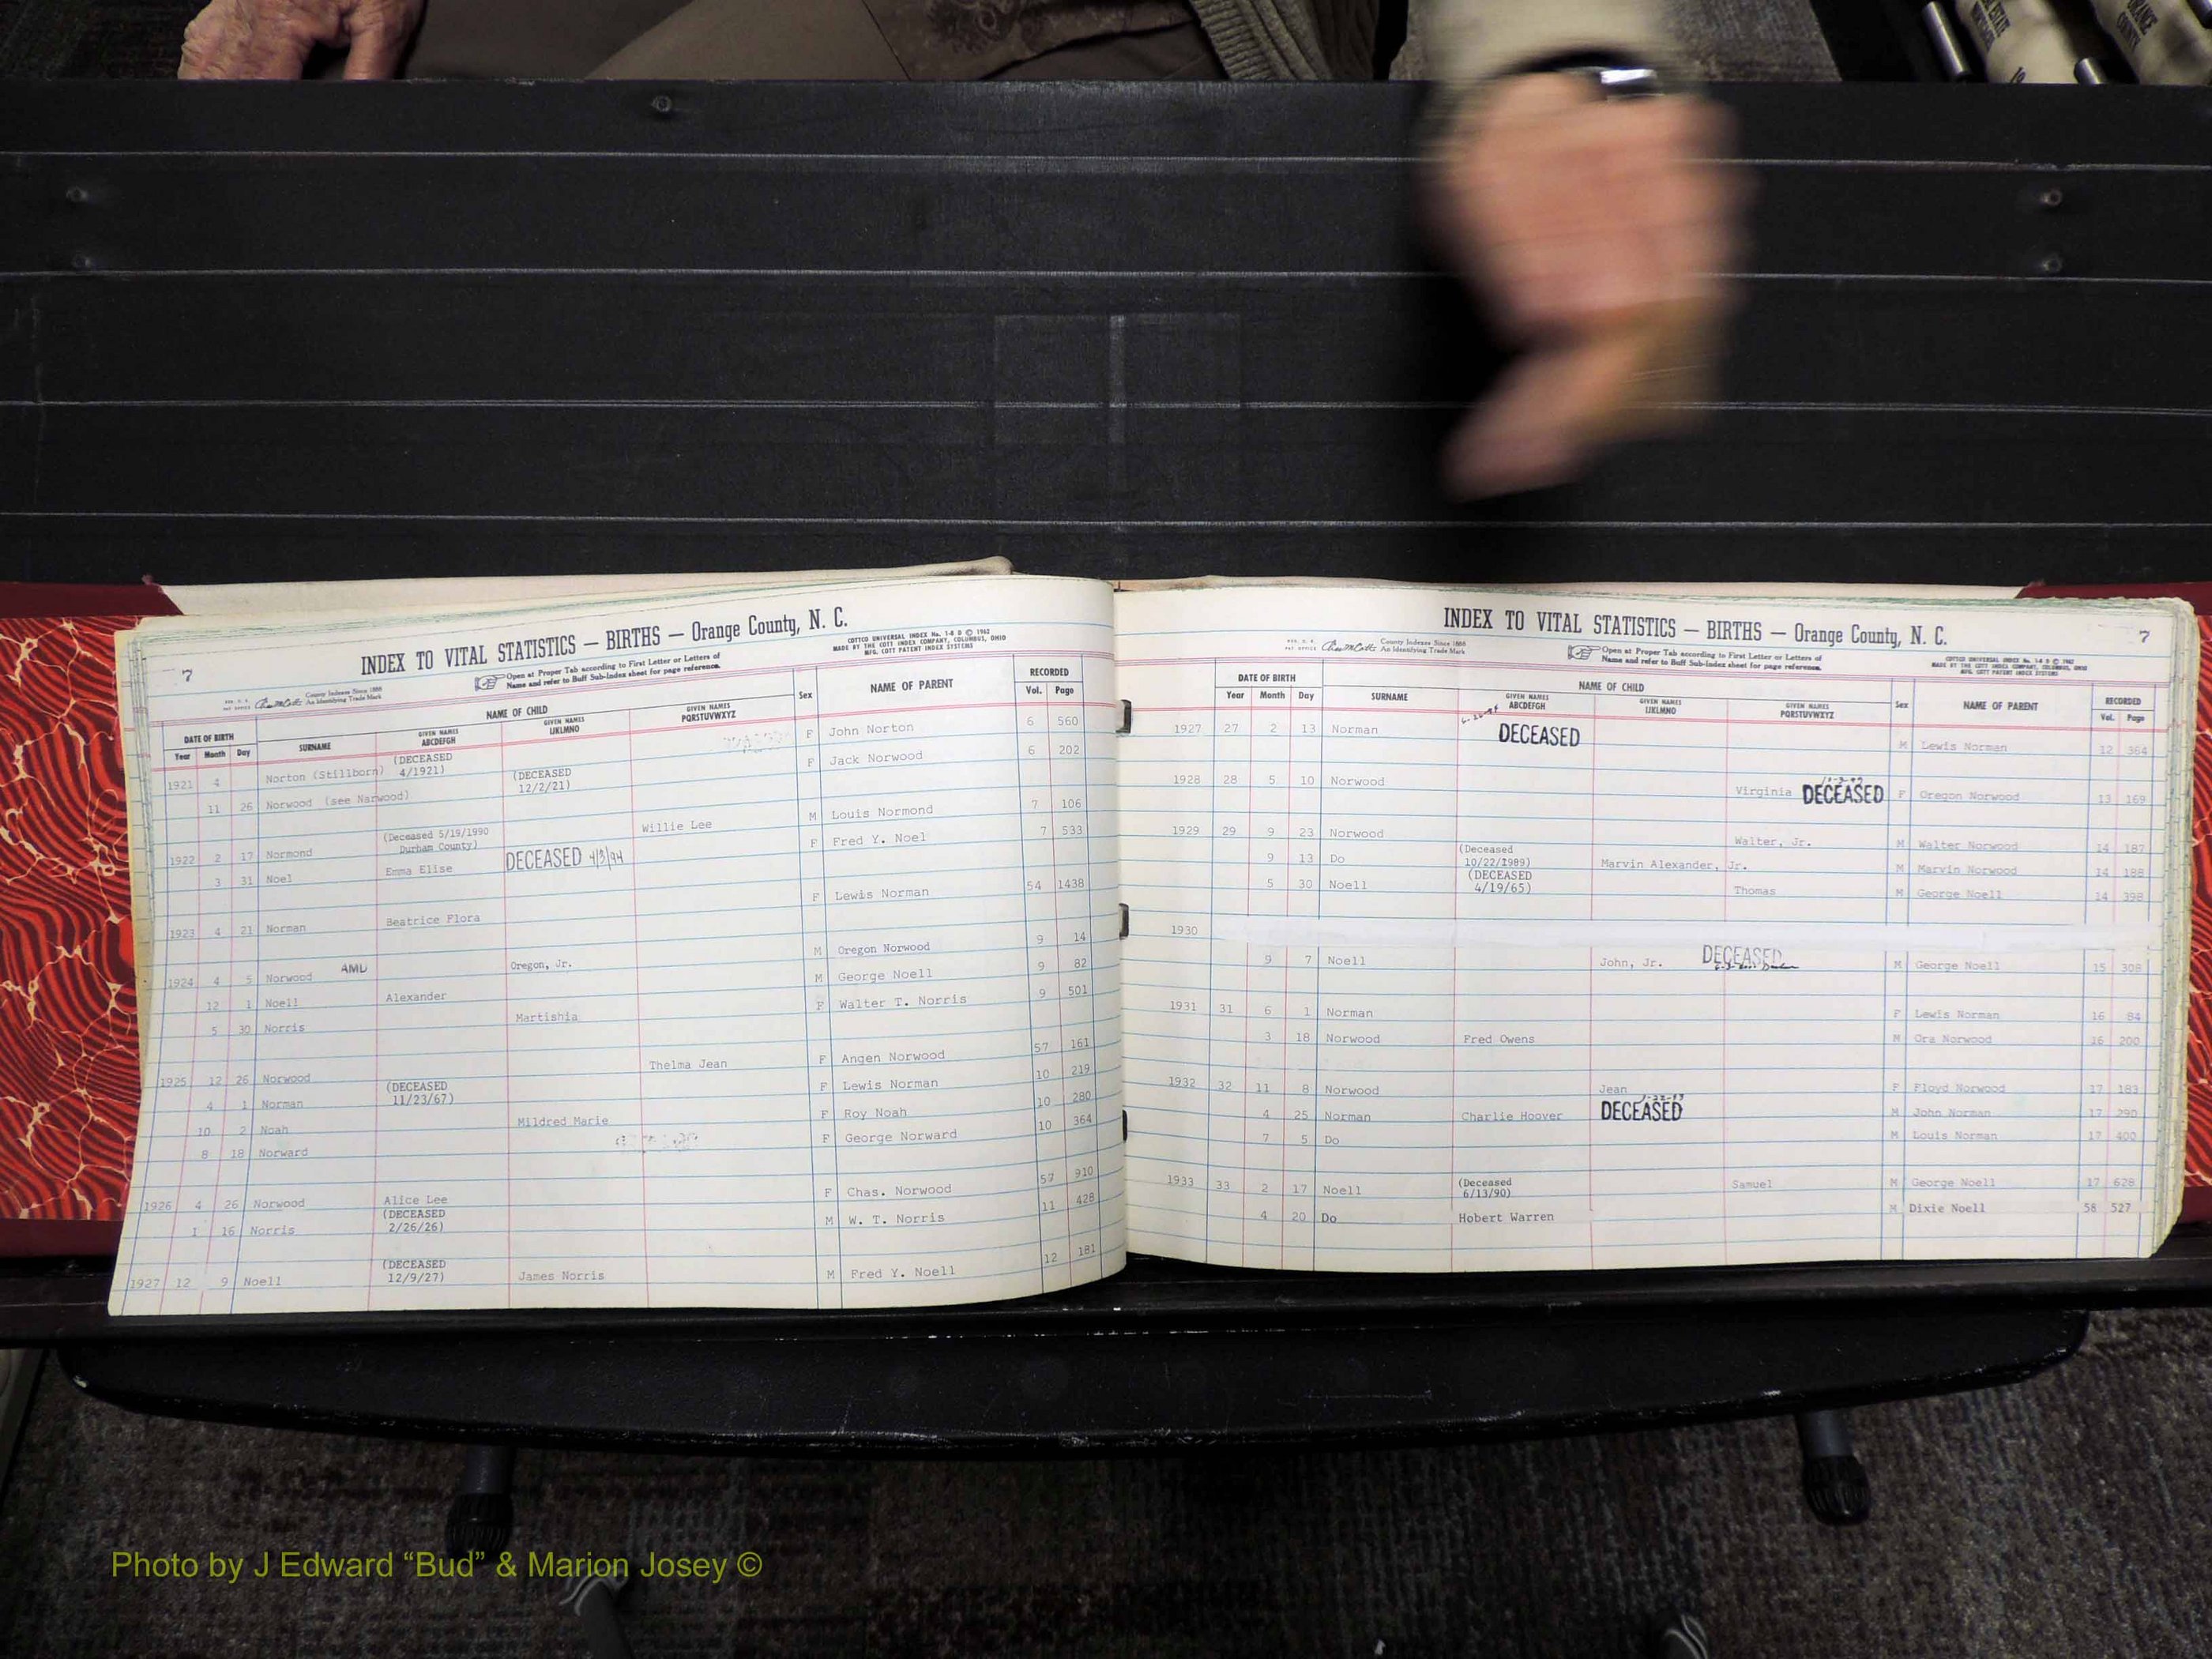 7
INDEX TO VITAL STATISTICS — BIRTHS — Orange County, N. C.
COTTCO UNIVERSAL INDEX No. 1-8 D © 1962
MADE BY THE COTT INDEX COMPANY, COLUMBUS, OHIO
MFG. COTT PATENT INDEX SYSTEMS
County Indexes Since 1888
An Identifying Trade Mark
Open at Proper Tab according to First Letter or Letters of
Name and refer to Buff Sub-Index sheet for page reference.
DATE OF BIRTH NAME OF CHILD Sex NAME OF PARENT RECORDED
Year Month Day SURNAME GIVEN NAMES ABCDEFGH GIVEN NAMES IJKLMNO GIVEN NAMES PQRSTUVWXYZ Vol. Page
1921 4 Norton (Stillborn) (DECEASED 4/1921) F John Norton 6 560
11 26 Norwood (see Narwood) (DECEASED 12/2/21) F Jack Norwood 6 202
1922 2 17 Normond (Deceased 5/19/1990 Durham County) Willie Lee M Louis Normond 7 106
3 31 Noel Emma Elise DECEASED 4/3/94 F Fred Y. Noel 7 533
1923 4 21 Norman Beatrice Flora F Lewis Norman 54 1438
1924 4 5 Norwood AMD Oregon, Jr. M Oregon Norwood 9 14
12 1 Noell Alexander M George Noell 9 82
5 30 Norris Martishia F Walter T. Norris 9 501
1925 12 26 Norwood Thelma Jean F Angen Norwood 57 161
4 1 Norman (DECEASED 11/23/67) F Lewis Norman 10 219
10 2 Noah Mildred Marie F Roy Noah 10 280
8 18 Norward F George Norward 10 364
1926 4 26 Norwood Alice Lee F Chas. Norwood 59 910
1 16 Norris (DECEASED 2/26/26) M W. T. Norris 11 428
1927 12 9 Noell (DECEASED 12/9/27) James Norris M Fred Y. Noell 12 181
INDEX TO VITAL STATISTICS — BIRTHS — Orange County, N. C.
7
County Indexes Since 1888
An Identifying Trade Mark
Open at Proper Tab according to First Letter or Letters of
Name and refer to Buff Sub-Index sheet for page reference.
COTTCO UNIVERSAL INDEX No. 1-8 D © 1962
MADE BY THE COTT INDEX COMPANY, COLUMBUS, OHIO
MFG. COTT PATENT INDEX SYSTEMS
DATE OF BIRTH NAME OF CHILD Sex NAME OF PARENT RECORDED
Year Month Day SURNAME GIVEN NAMES ABCDEFGH GIVEN NAMES IJKLMNO GIVEN NAMES PQRSTUVWXYZ Vol. Page
1927 27 2 13 Norman DECEASED M Lewis Norman 12 364
1928 28 5 10 Norwood Virginia DECEASED F Oregon Norwood 13 169
1929 29 9 23 Norwood Walter, Jr. M Walter Norwood 14 187
9 13 Do (Deceased 10/22/1989) Marvin Alexander, Jr. M Marvin Norwood 14 188
5 30 Noell (DECEASED 4/19/65) Thomas M George Noell 14 398
1930
9 7 Noell John, Jr. DECEASED M George Noell 15 308
1931 31 6 1 Norman F Lewis Norman 16 84
3 18 Norwood Fred Owens M Ora Norwood 16 200
1932 32 11 8 Norwood Jean F Floyd Norwood 17 183
4 25 Norman Charlie Hoover DECEASED M John Norman 17 290
7 5 Do M Louis Norman 17 400
1933 33 2 17 Noell (Deceased 6/13/90) Samuel M George Noell 17 628
4 20 Do Hobert Warren M Dixie Noell 58 527
Photo by J Edward “Bud” & Marion Josey ©